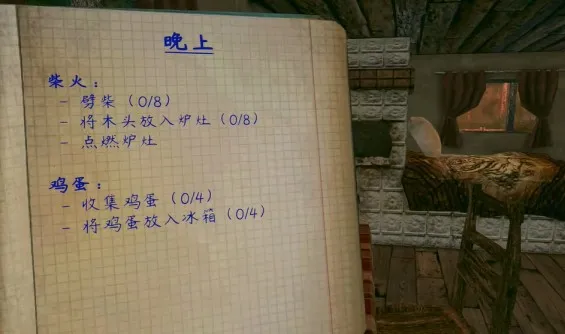 晚上
柴火：
- 劈柴（0/8）
- 将木头放入炉灶（0/8）
- 点燃炉灶
鸡蛋：
- 收集鸡蛋（0/4）
- 将鸡蛋放入冰箱（0/4）